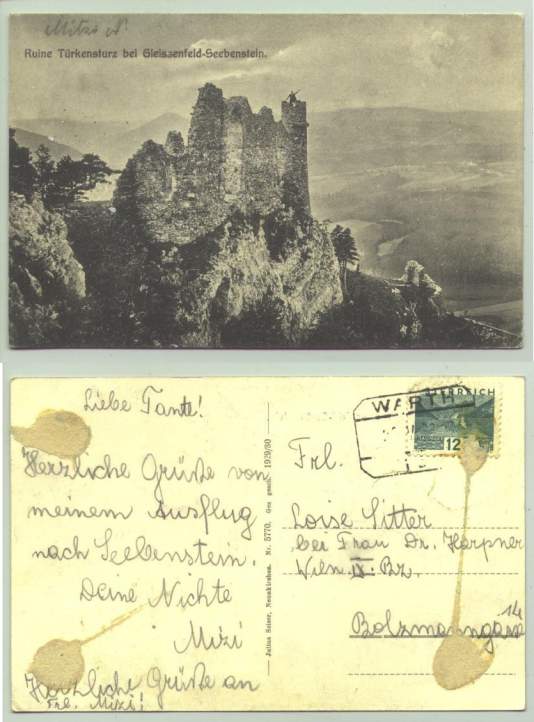 Mitzi
Ruine Türkensturz bei Gleiszenfeld-Seebenstein.
Liebe Tante!
Herzliche Grüße von
meinem Ausflug
nach Seebenstein.
Deine Nichte
Mizi
Herzliche Grüße an
Frl. Mizi!
Julius Seiser, Neunkirchen. Nr. 5770. Ges gesch. 1929/30
WARTH
ÖSTERREICH
12
Frl.
Loise Sitter
bei Frau Dr. Harpner
Wien IX. Bz.
Bolzmanngasse